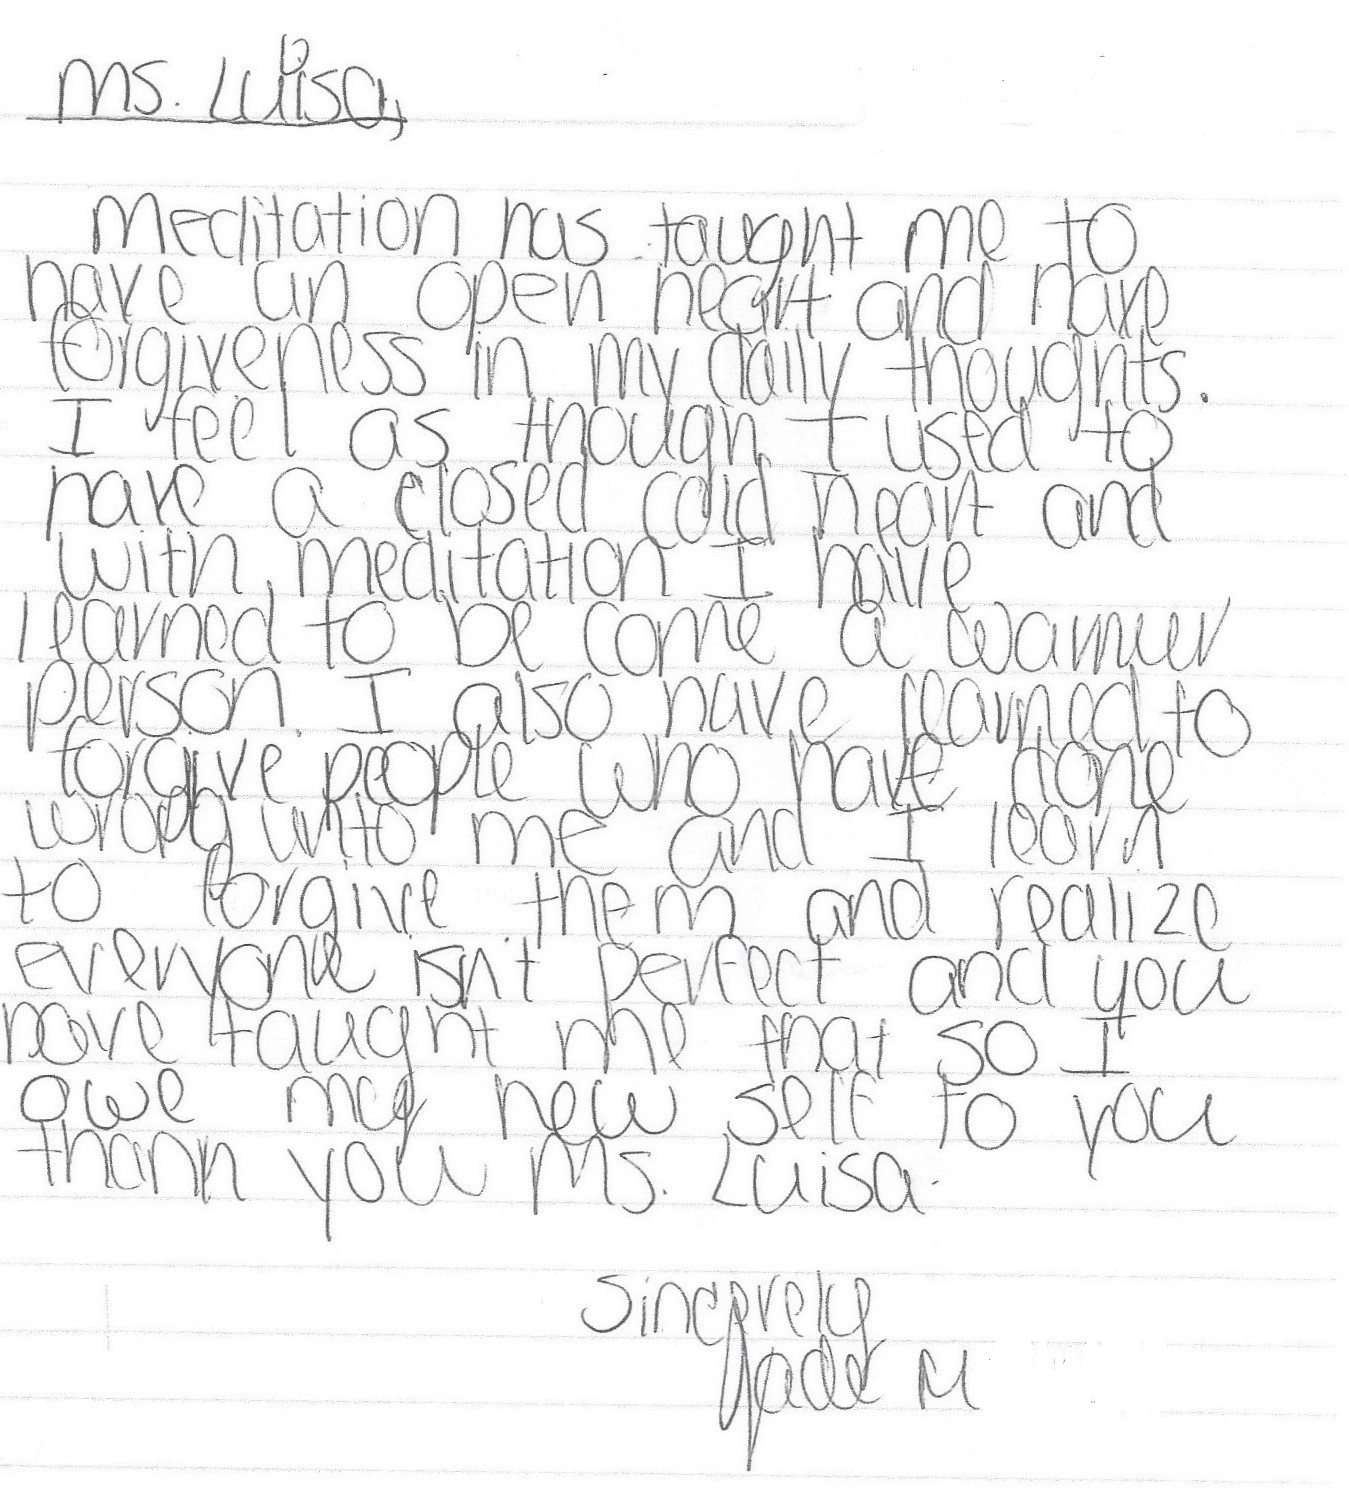 Ms. Luisa,
Meditation has taught me to
have an open heart and have
forgiveness in my daily thoughts.
I feel as though I used to
have a closed cold heart and
with meditation I have
learned to be come a warmer
person. I also have learned to
forgive people who have done
wrong unto me and I learn
to forgive them and realize
everyone isn't perfect and you
have taught me that so I
owe my new self to you
thank you Ms. Luisa.
Sincerely
Jade M